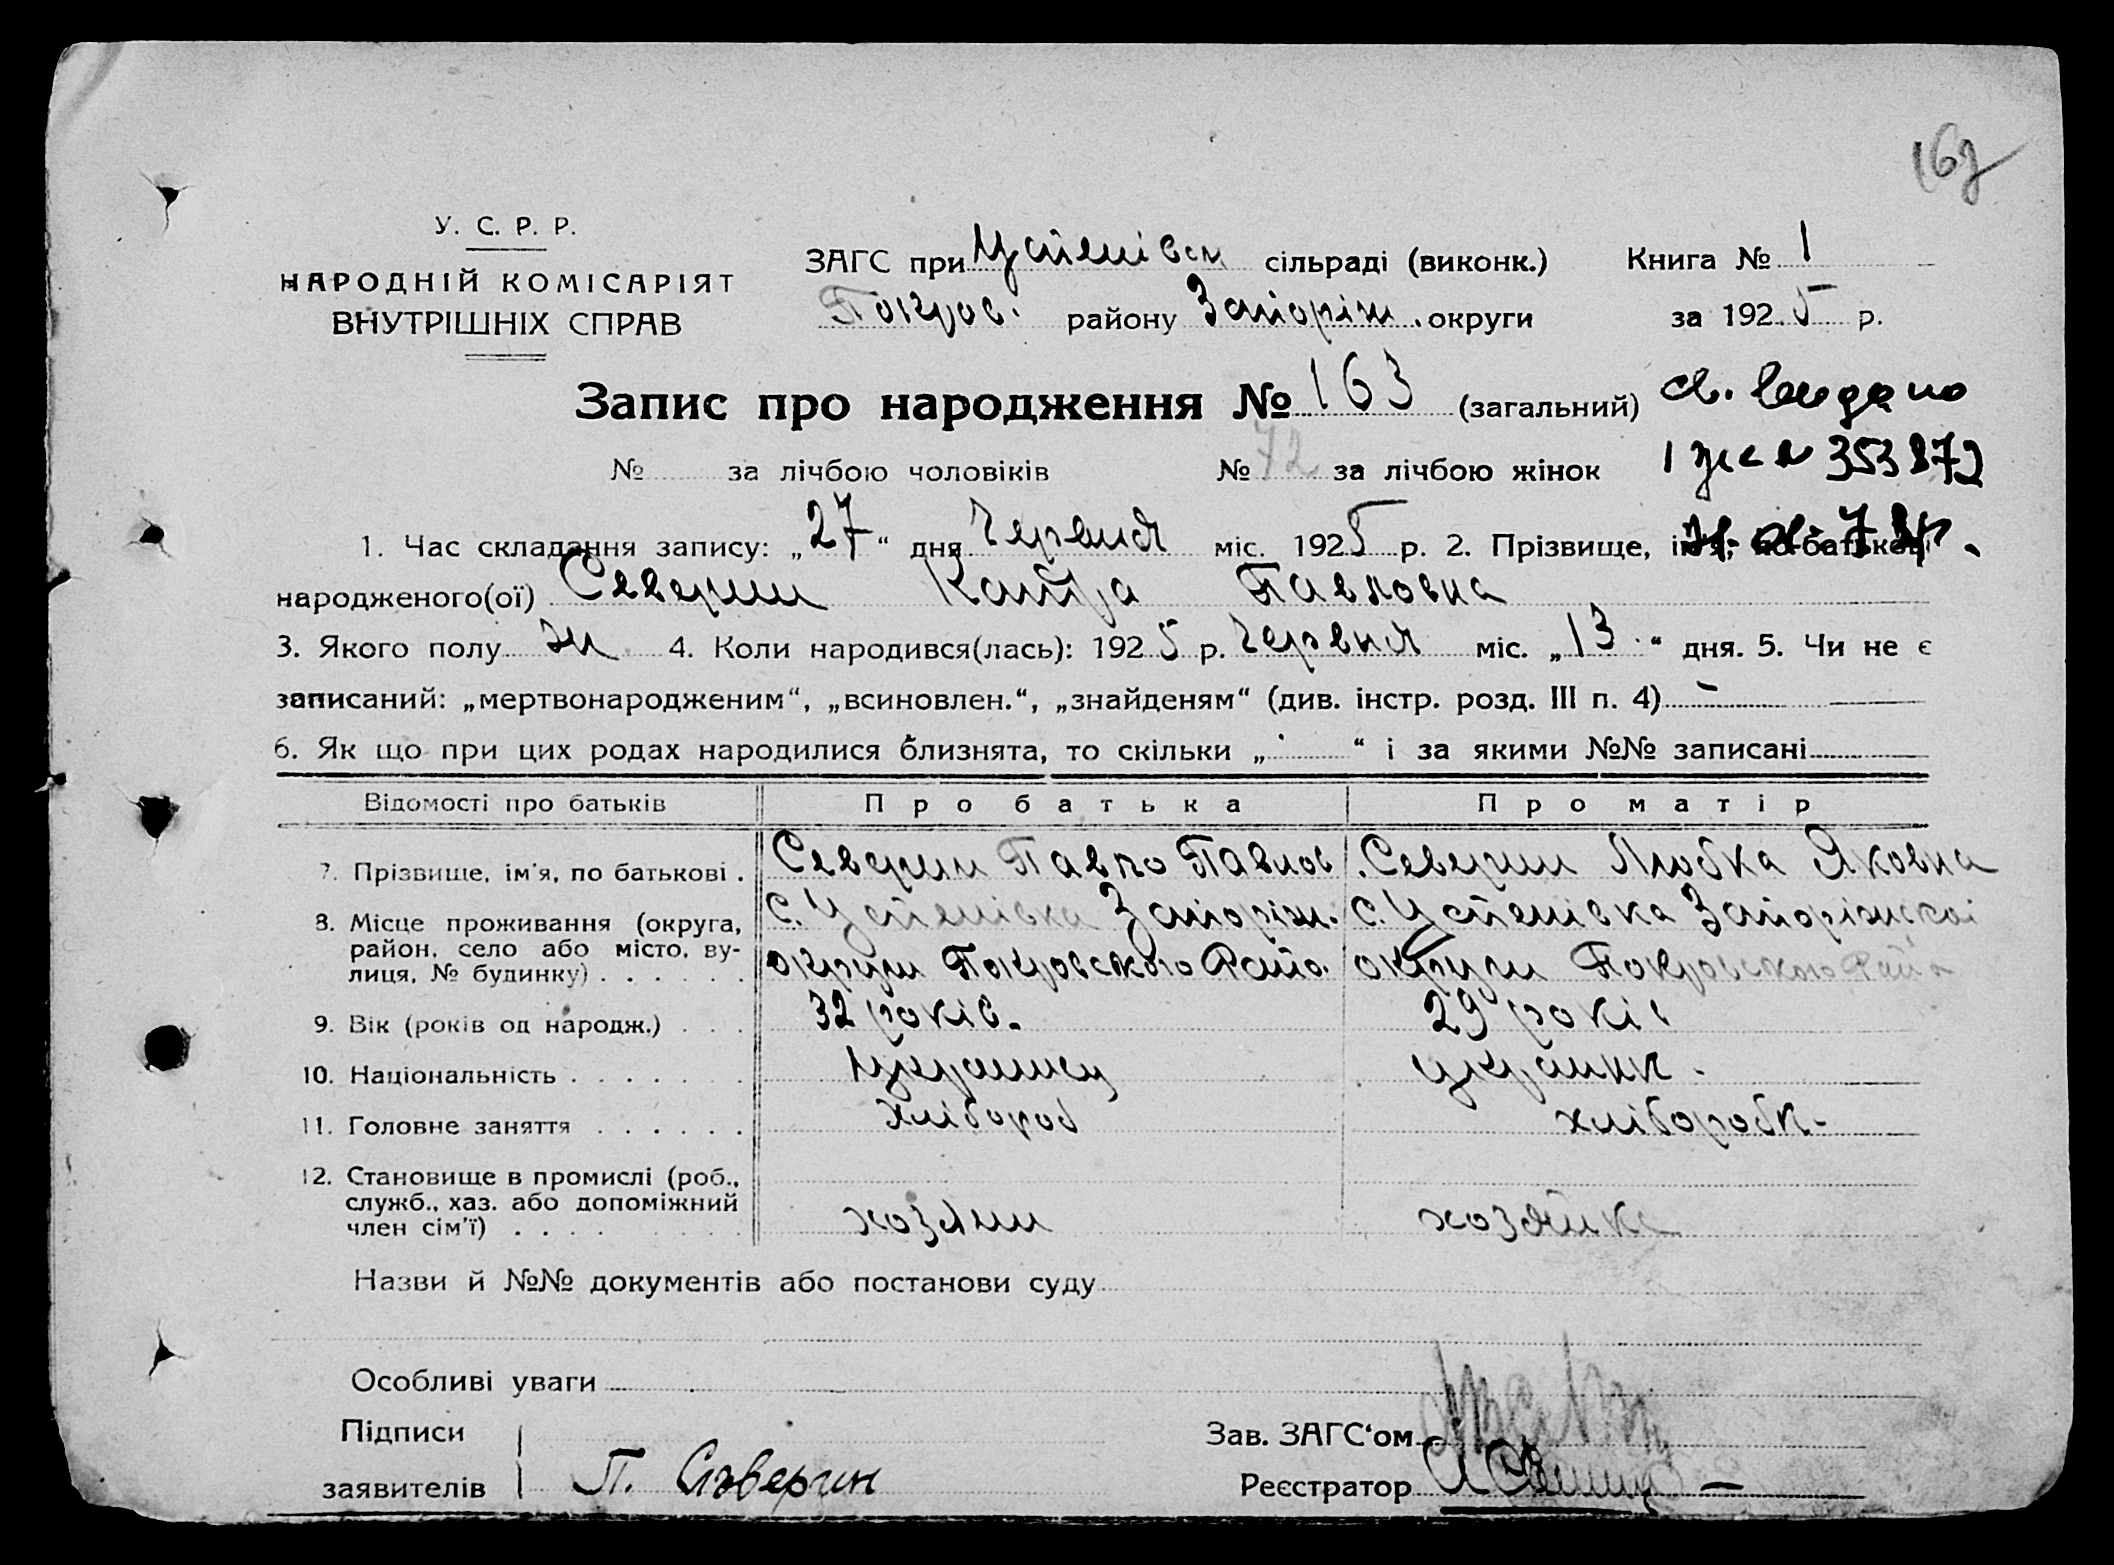 163
У. С. Р. Р.
НАРОДНІЙ КОМІСАРІЯТ
ВНУТРІШНІХ СПРАВ
ЗАГС при Успенівск сільраді (виконк.) Книга № 1
Покров. району Запоріж. округи за 1925 р.
Запис про народження № 163 (загальний)
№ за лічбою чоловіків № 72 за лічбою жінок
1. Час складання запису: „27“ дня Червня міс. 1925 р. 2. Прізвище, ім'я, по батькові
народженого(ої) Северин Катря Павловна
3. Якого полу ж 4. Коли народився(лась): 1925 р. Червня міс. „13“ дня. 5. Чи не є
записаний: „мертвонародженим“, „всиновлен.“, „знайденям“ (див. інстр. розд. III п. 4) –
6. Як що при цих родах народилися близнята, то скільки „ “ і за якими №№ записані
Відомості про батьків Про батька Про матір
7. Прізвище, ім'я, по батькові . Северин Павло Павлов Северин Любка Яковна
8. Місце проживання (округа, с. Успенівка Запоріж. с. Успенівка Запоріжскоі
район, село або місто, ву-
лиця, № будинку) . . . . . . округи Покровського Райо. округи Покровського Рай
9. Вік (років од народж.) . . . 32 років. 29 років
10. Національність . . . . . . . Украинец украинк.
11. Головне заняття . . . . . . хлібороб хлібробк-
12. Становище в промислі (роб.,
служб., хаз. або допоміжний
член сім'ї) . . . . хозяин хозяйка
Назви й №№ документів або постанови суду
Особливі уваги
Підписи Зав. ЗАГС‘ом
заявителів П. Сѣверин Реєстратор